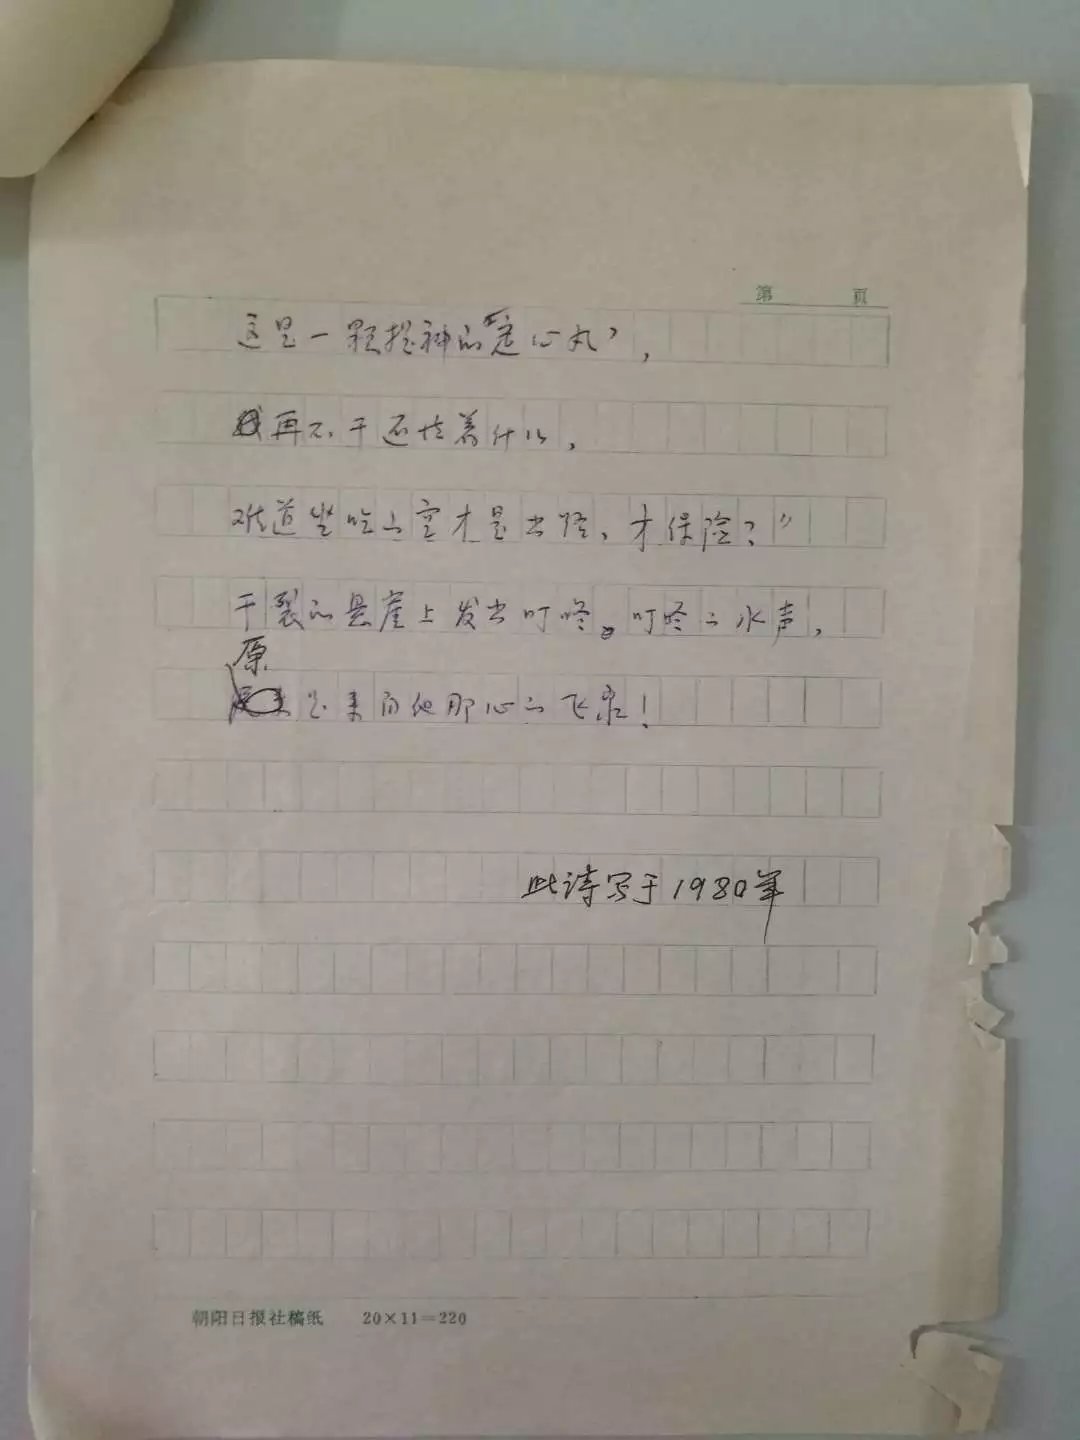 第 页
这是一颗提神的“定心丸”,
我再不干还怕着什么,
难道坐吃山空才是出路,才保险?”
干裂的悬崖上发出叮咚。叮咚的水声,
原
是来自他那心的飞泉!
此诗写于1980年
朝阳日报社稿纸 20×11=220